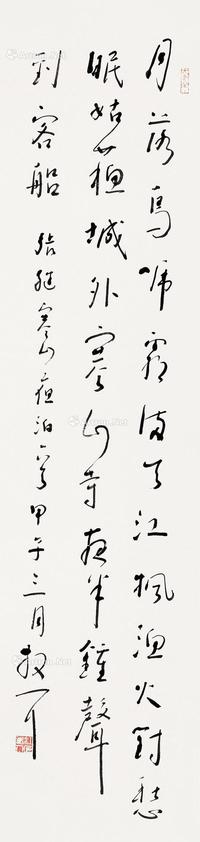 月落烏啼霜滿天江楓漁火對愁
眠姑蘇城外寒山寺夜半鐘聲
到客船 張繼寒山夜泊 甲午三月散耳